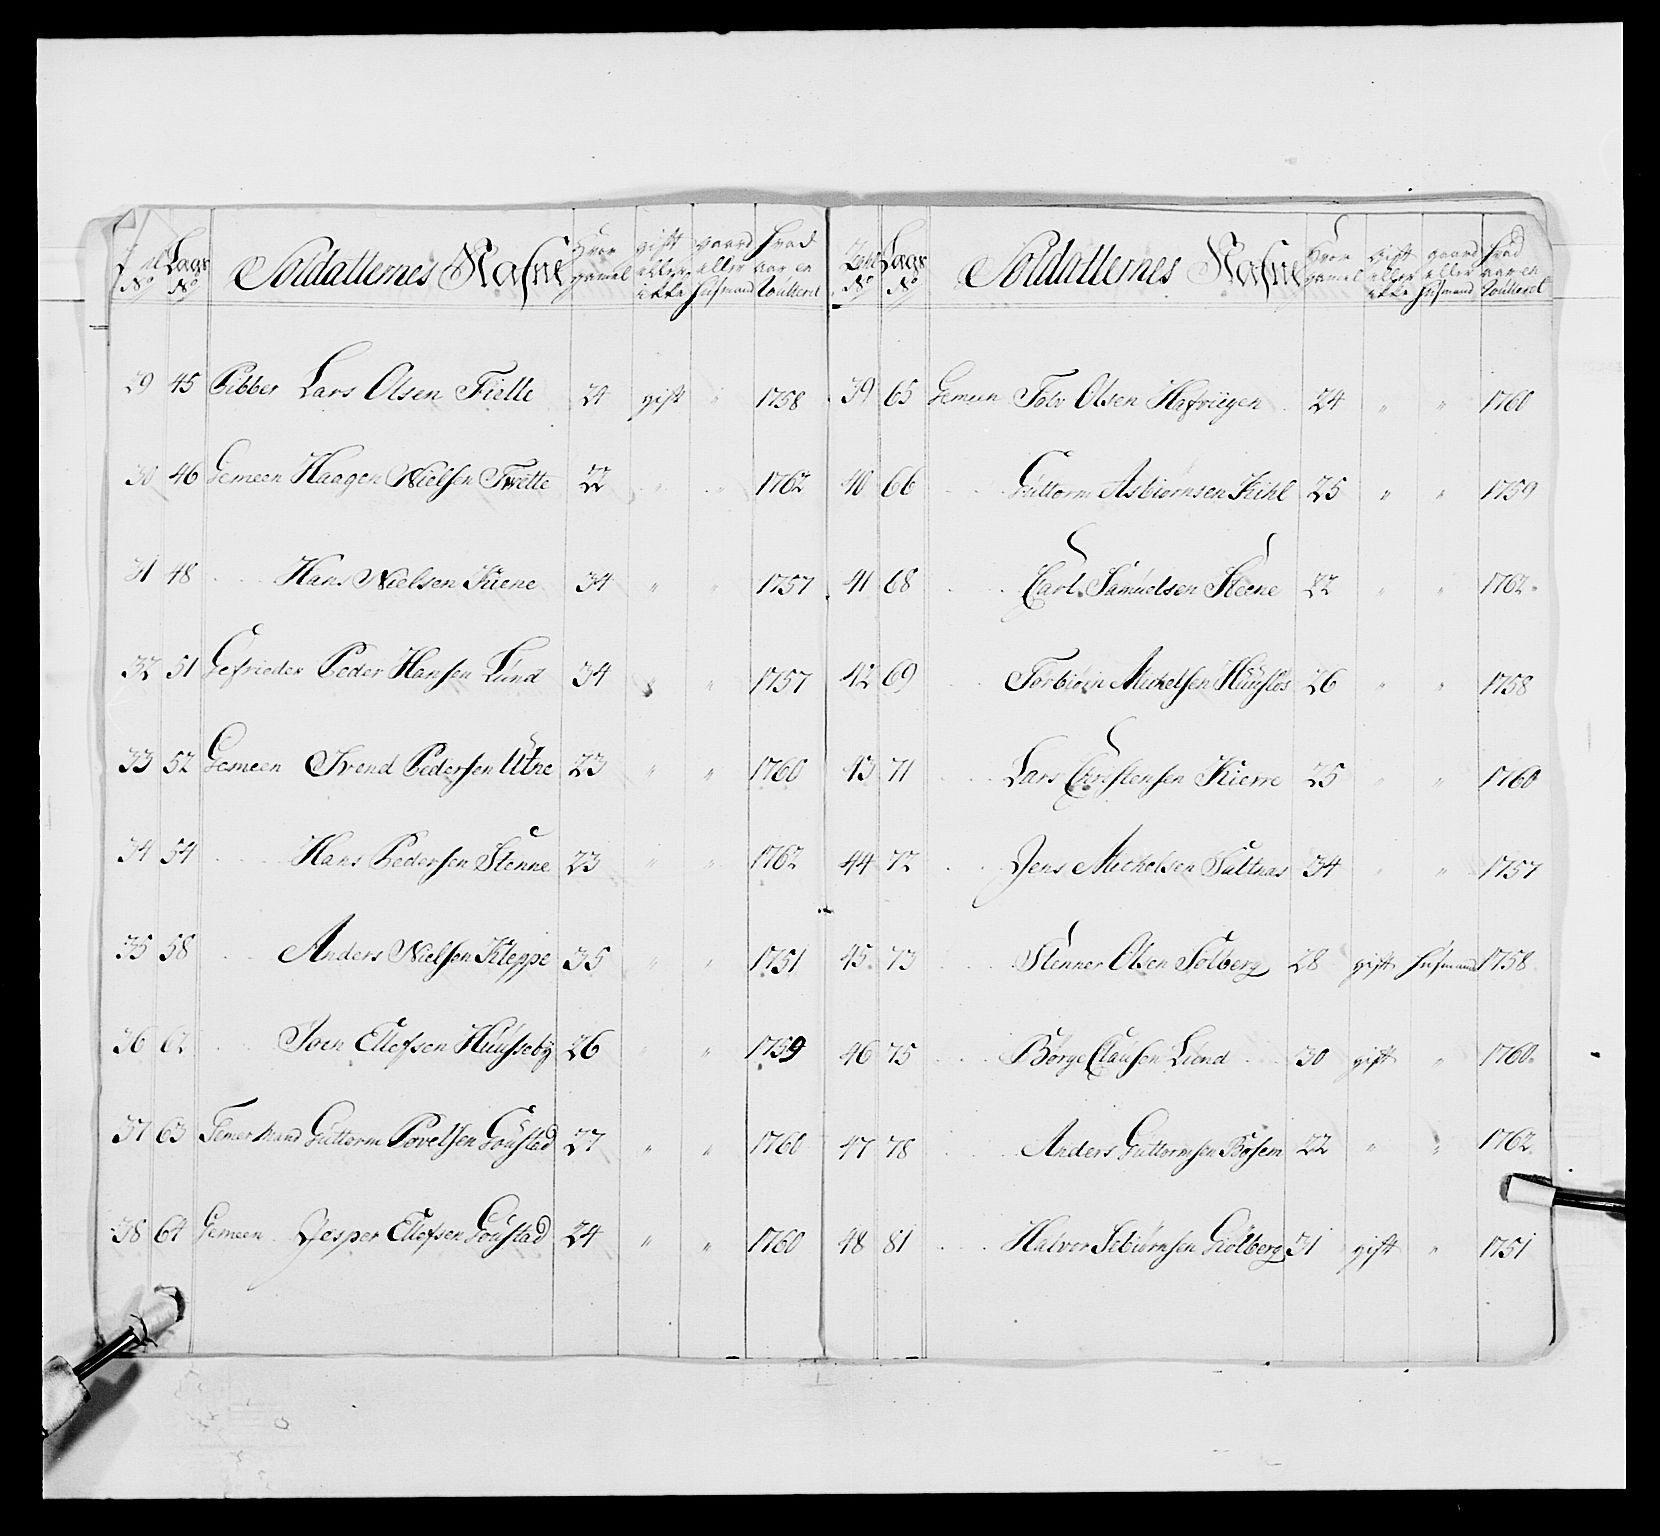 Tal No Lags No Soldatternes Nafne Hvor gamel gift eller ikke gaard eller husmand hvad aar en roulleret
29 45 Pibber Lars Olsen Tielle 24 gift " 1758
30 46 Gemeen Haagen Nielsen Tvette 22 " " 1762
31 48 Hans Nielsen Kiene 34 " " 1757
32 51 Gefrieder Peder Hansen Lund 34 " " 1757
33 52 Gemeen Svend Pedersen Utne 23 " " 1760
34 54 Hans Pedersen Stenne 23 " " 1762
35 58 Anders Nielsen Kleppe 35 " " 1751
36 62 Joen Ellefsen Huusseby 26 " " 1759
37 63 Temermand Guttorm Povelsen Goustad 27 " " 1760
38 64 Gemeen Jesper Ellefsen Goustad 24 " " 1760
Tal No Lags No Soldatternes Nafne Hvor gamel gift eller ikke gaard eller husmand hvad aar en roulleret
39 65 Gemeen Tolv Olsen 24 " " 1760
40 66 Guttorm Asbiørnsen Kihl 25 " " 1759
41 68 Carl Samuelsen Steene 22 " " 1762
42 69 Torbiørn Michelsen Huuslos 26 " " 1758
43 71 Lars Christensen Kierre 25 " " 1760
44 72 Jens Michelsen 34 " " 1757
45 73 Stenner Olsen Solberg 28 gift husmand 1758
46 75 Børge Clausen Lund 30 gift " 1760
47 78 Anders Guttormsen Bosem 22 " " 1762
48 81 Halvor Sebiørnsen Giolberg 31 gift " 1751